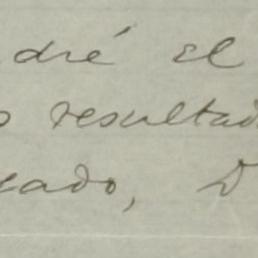 dré el
s resultad
eado, D